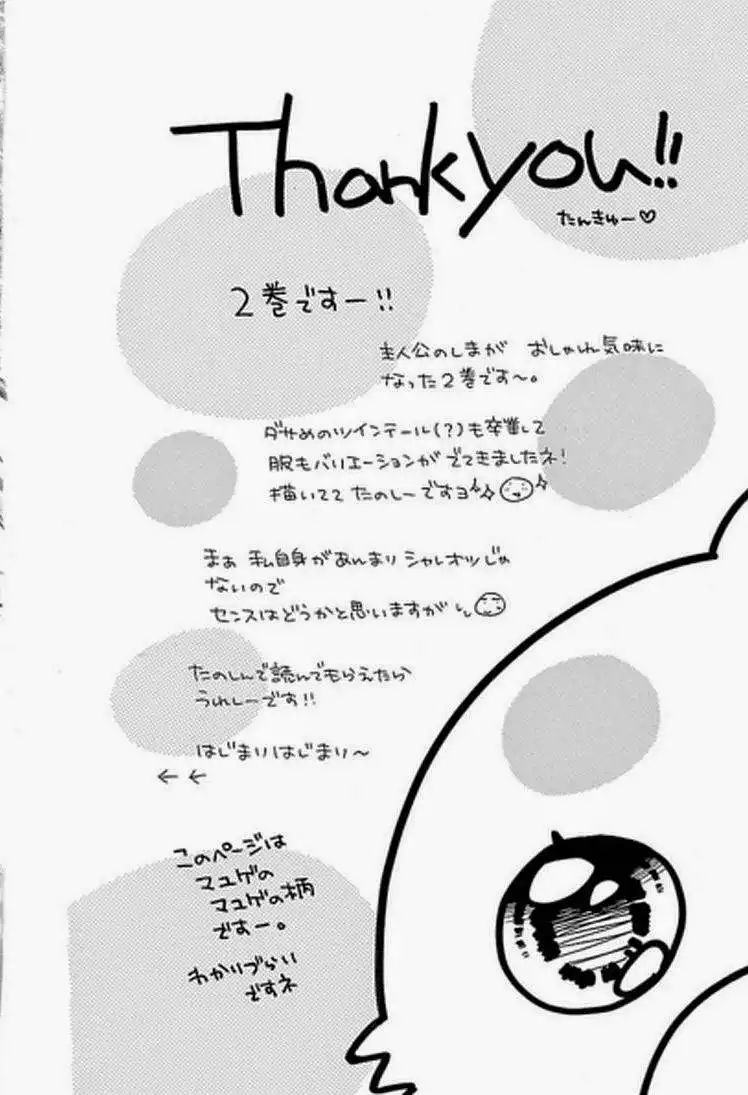 Thank you!!
たんきゅー♡
2巻ですー!!
主人公のしまが おしゃれ気味に
なった2巻です〜。
ダサめのツインテール(?)も卒業して
服もバリエーションがでてきましたネ!
描いてて たのしーですヨ
まぁ 私自身があんまり シャレオツじゃ
ないので
センスはどうかと思いますが
たのしんで読んでもらえたら
うれしーです!!
はじまりはじまり〜
← ←
このページは
マユゲの
マユゲの柄
ですー。
わかりづらい
ですネ